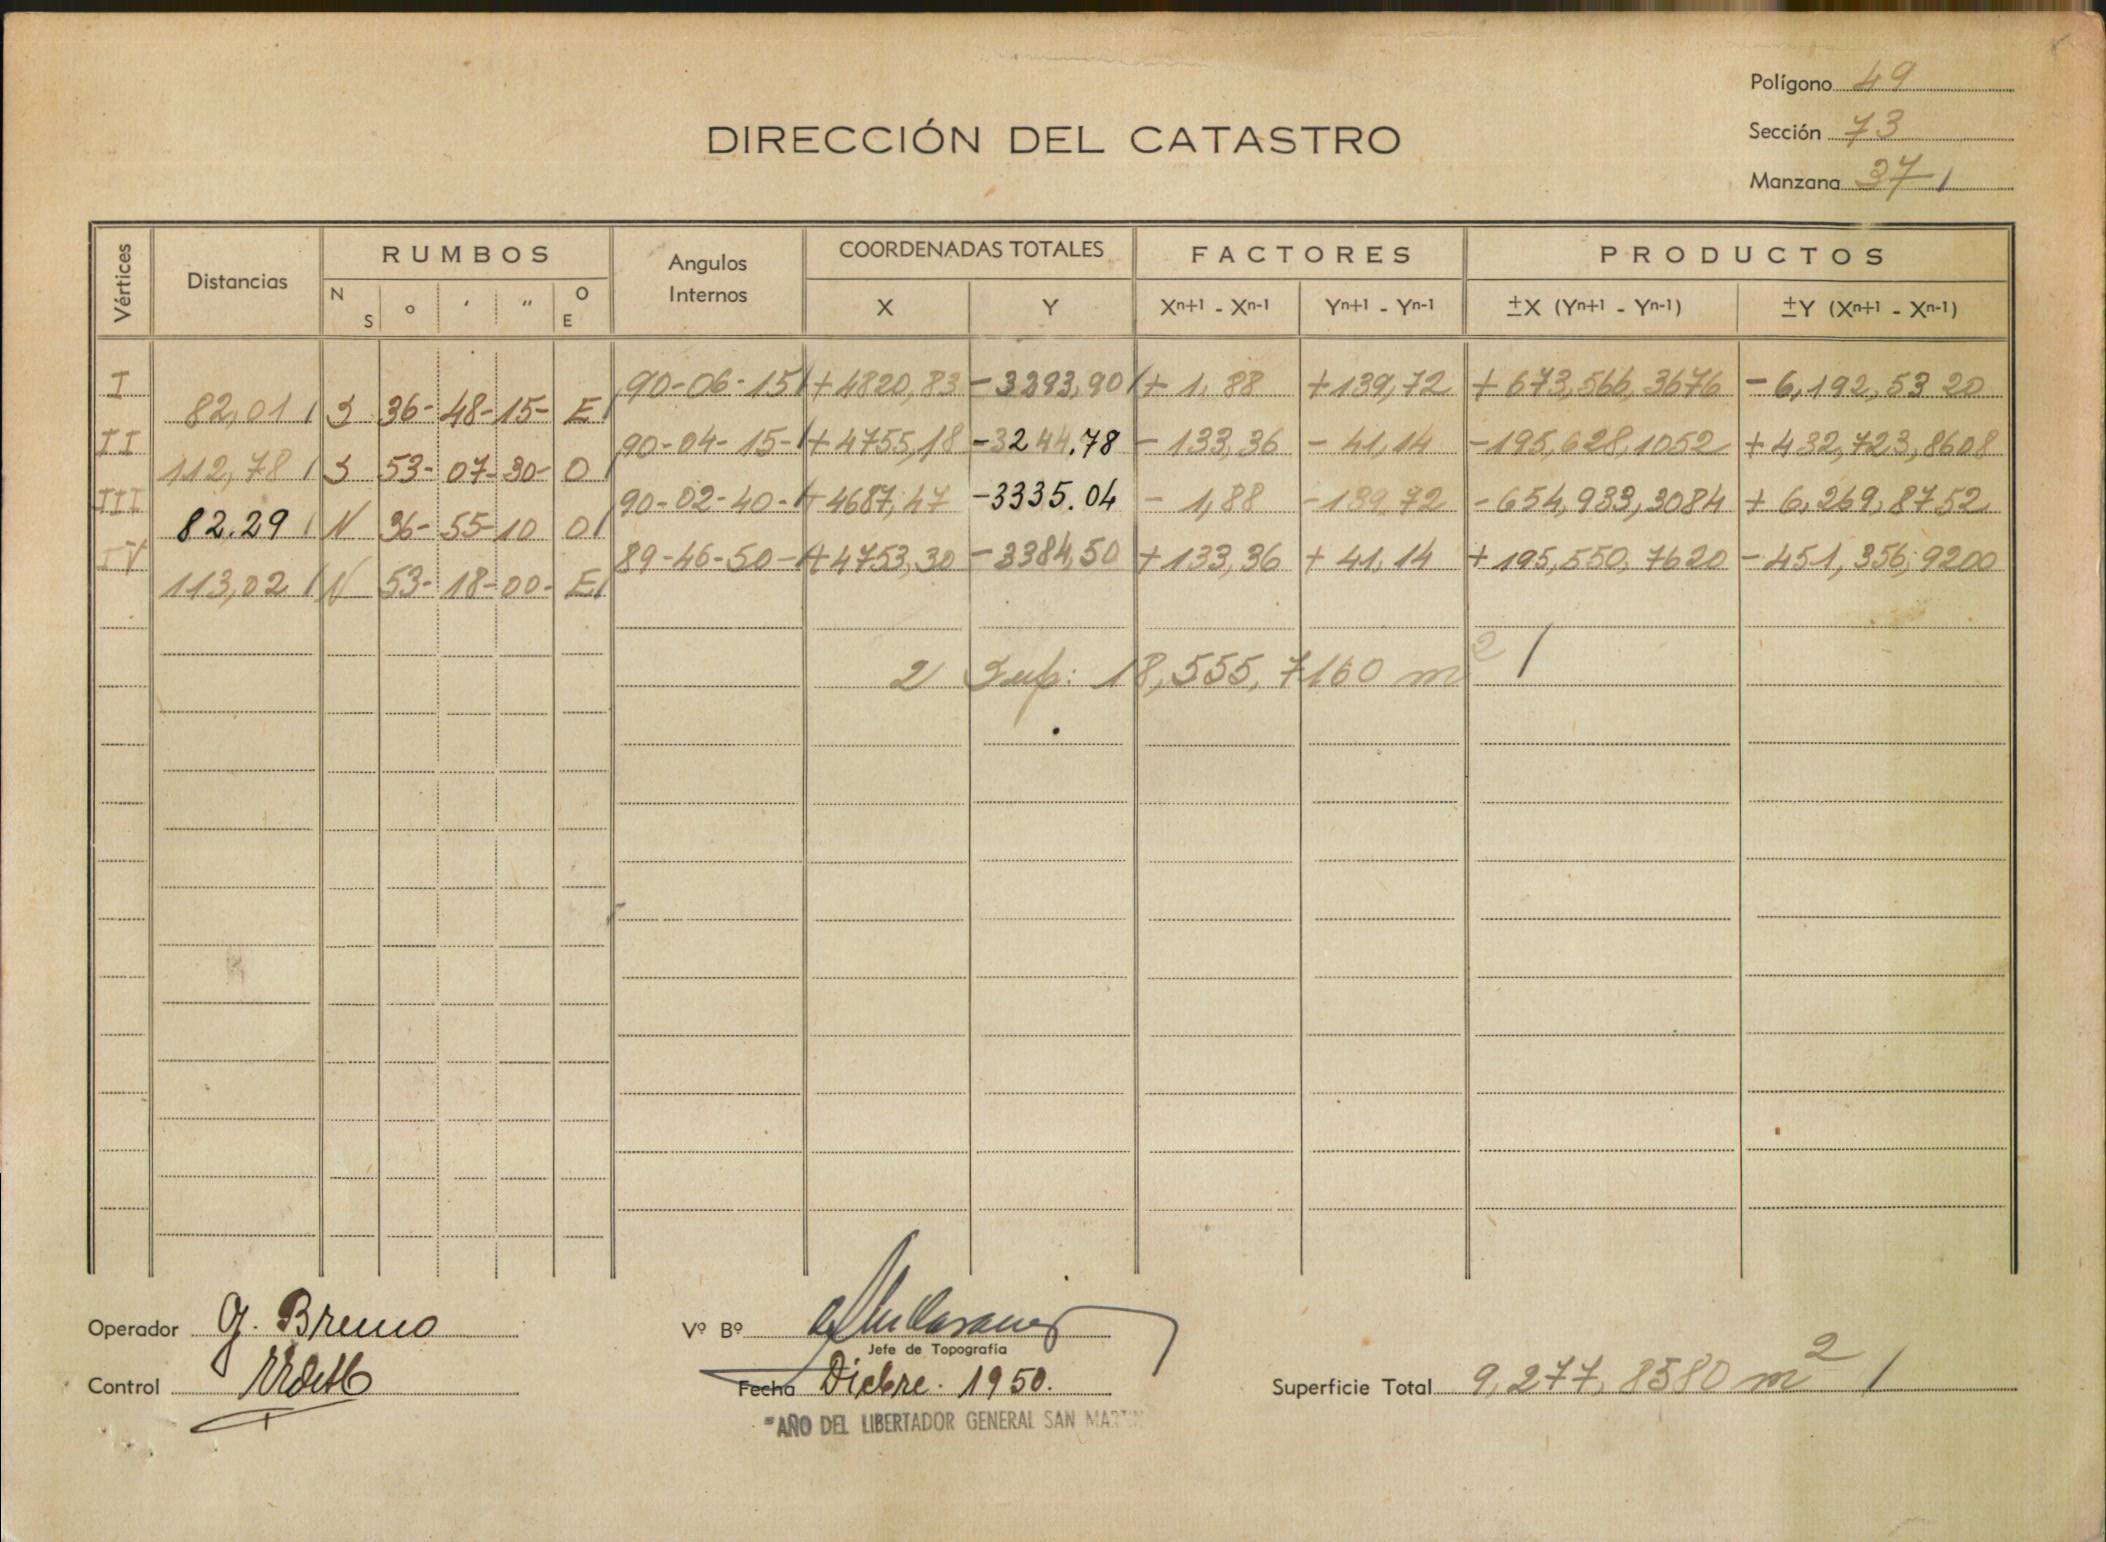 Polígono 49
DIRECCIÓN DEL CATASTRO
Sección 73
Manzana 37
Vértices Distancias RUMBOS Angulos Internos COORDENADAS TOTALES FACTORES PRODUCTOS
N S o ' " O E X Y Xn+1 - Xn-1 Yn+1 - Yn-1 ±X (Yn+1 - Yn-1) ±Y (Xn+1 - Xn-1)
I 90-06-15 +4820,83 -3293,90 + 1,88 +139,72 +673,566,3676 -6,192,5320
82,01 S 36- 48- 15- E
II 90-04-15- +4755,18 -3244.78 - 133,36 - 41,14 -195,628,1052 +432,723,8608
112,78 S 53- 07- 30- O
III 90-02-40- +4687,47 -3335.04 - 1,88 -139,72 -654,933,3084 + 6,269,8752
82.29 N 36- 55- 10 O
IV 89-46-50- +4753,30 -3384,50 +133,36 + 41,14 +195,550,7620 -451,356,9200
113,02 N 53- 18- 00- E
2 Sup: 18,555,7160 m2
Operador G. Bruno Vº Bº
Jefe de Topografía
Control Fecha Dicbre. 1950. Superficie Total 9,277,8580 m2
"AÑO DEL LIBERTADOR GENERAL SAN MARTIN